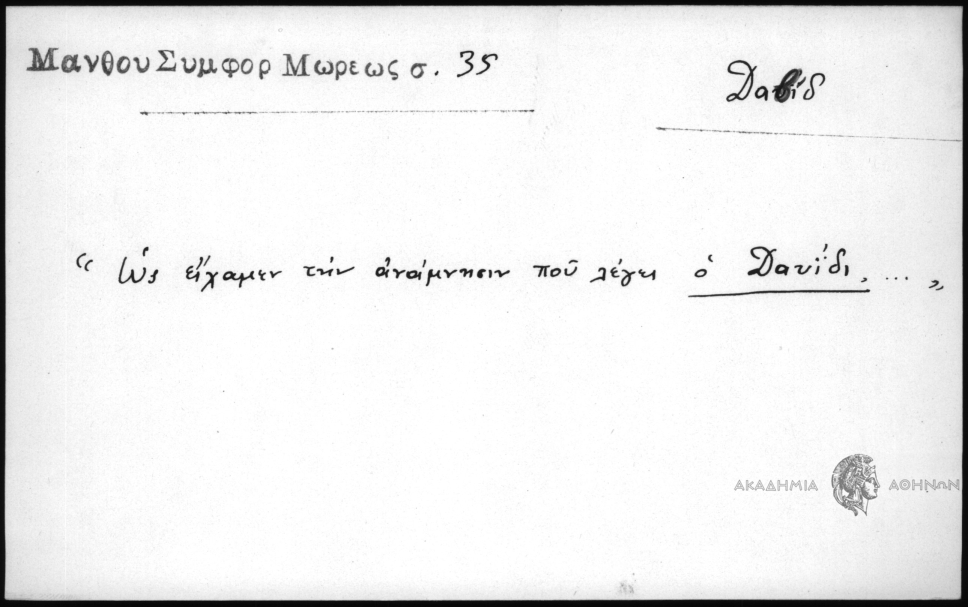 Μανθου Συμφορ Μωρεως σ. 35
Δαβίδ
“ Ὡς εἴχαμεν τήν ἀνάμνησιν ποῦ λέγει ὁ Δαυΐδι, ... „
ΑΚΑΔΗΜΙΑ ΑΘΗΝΩΝ